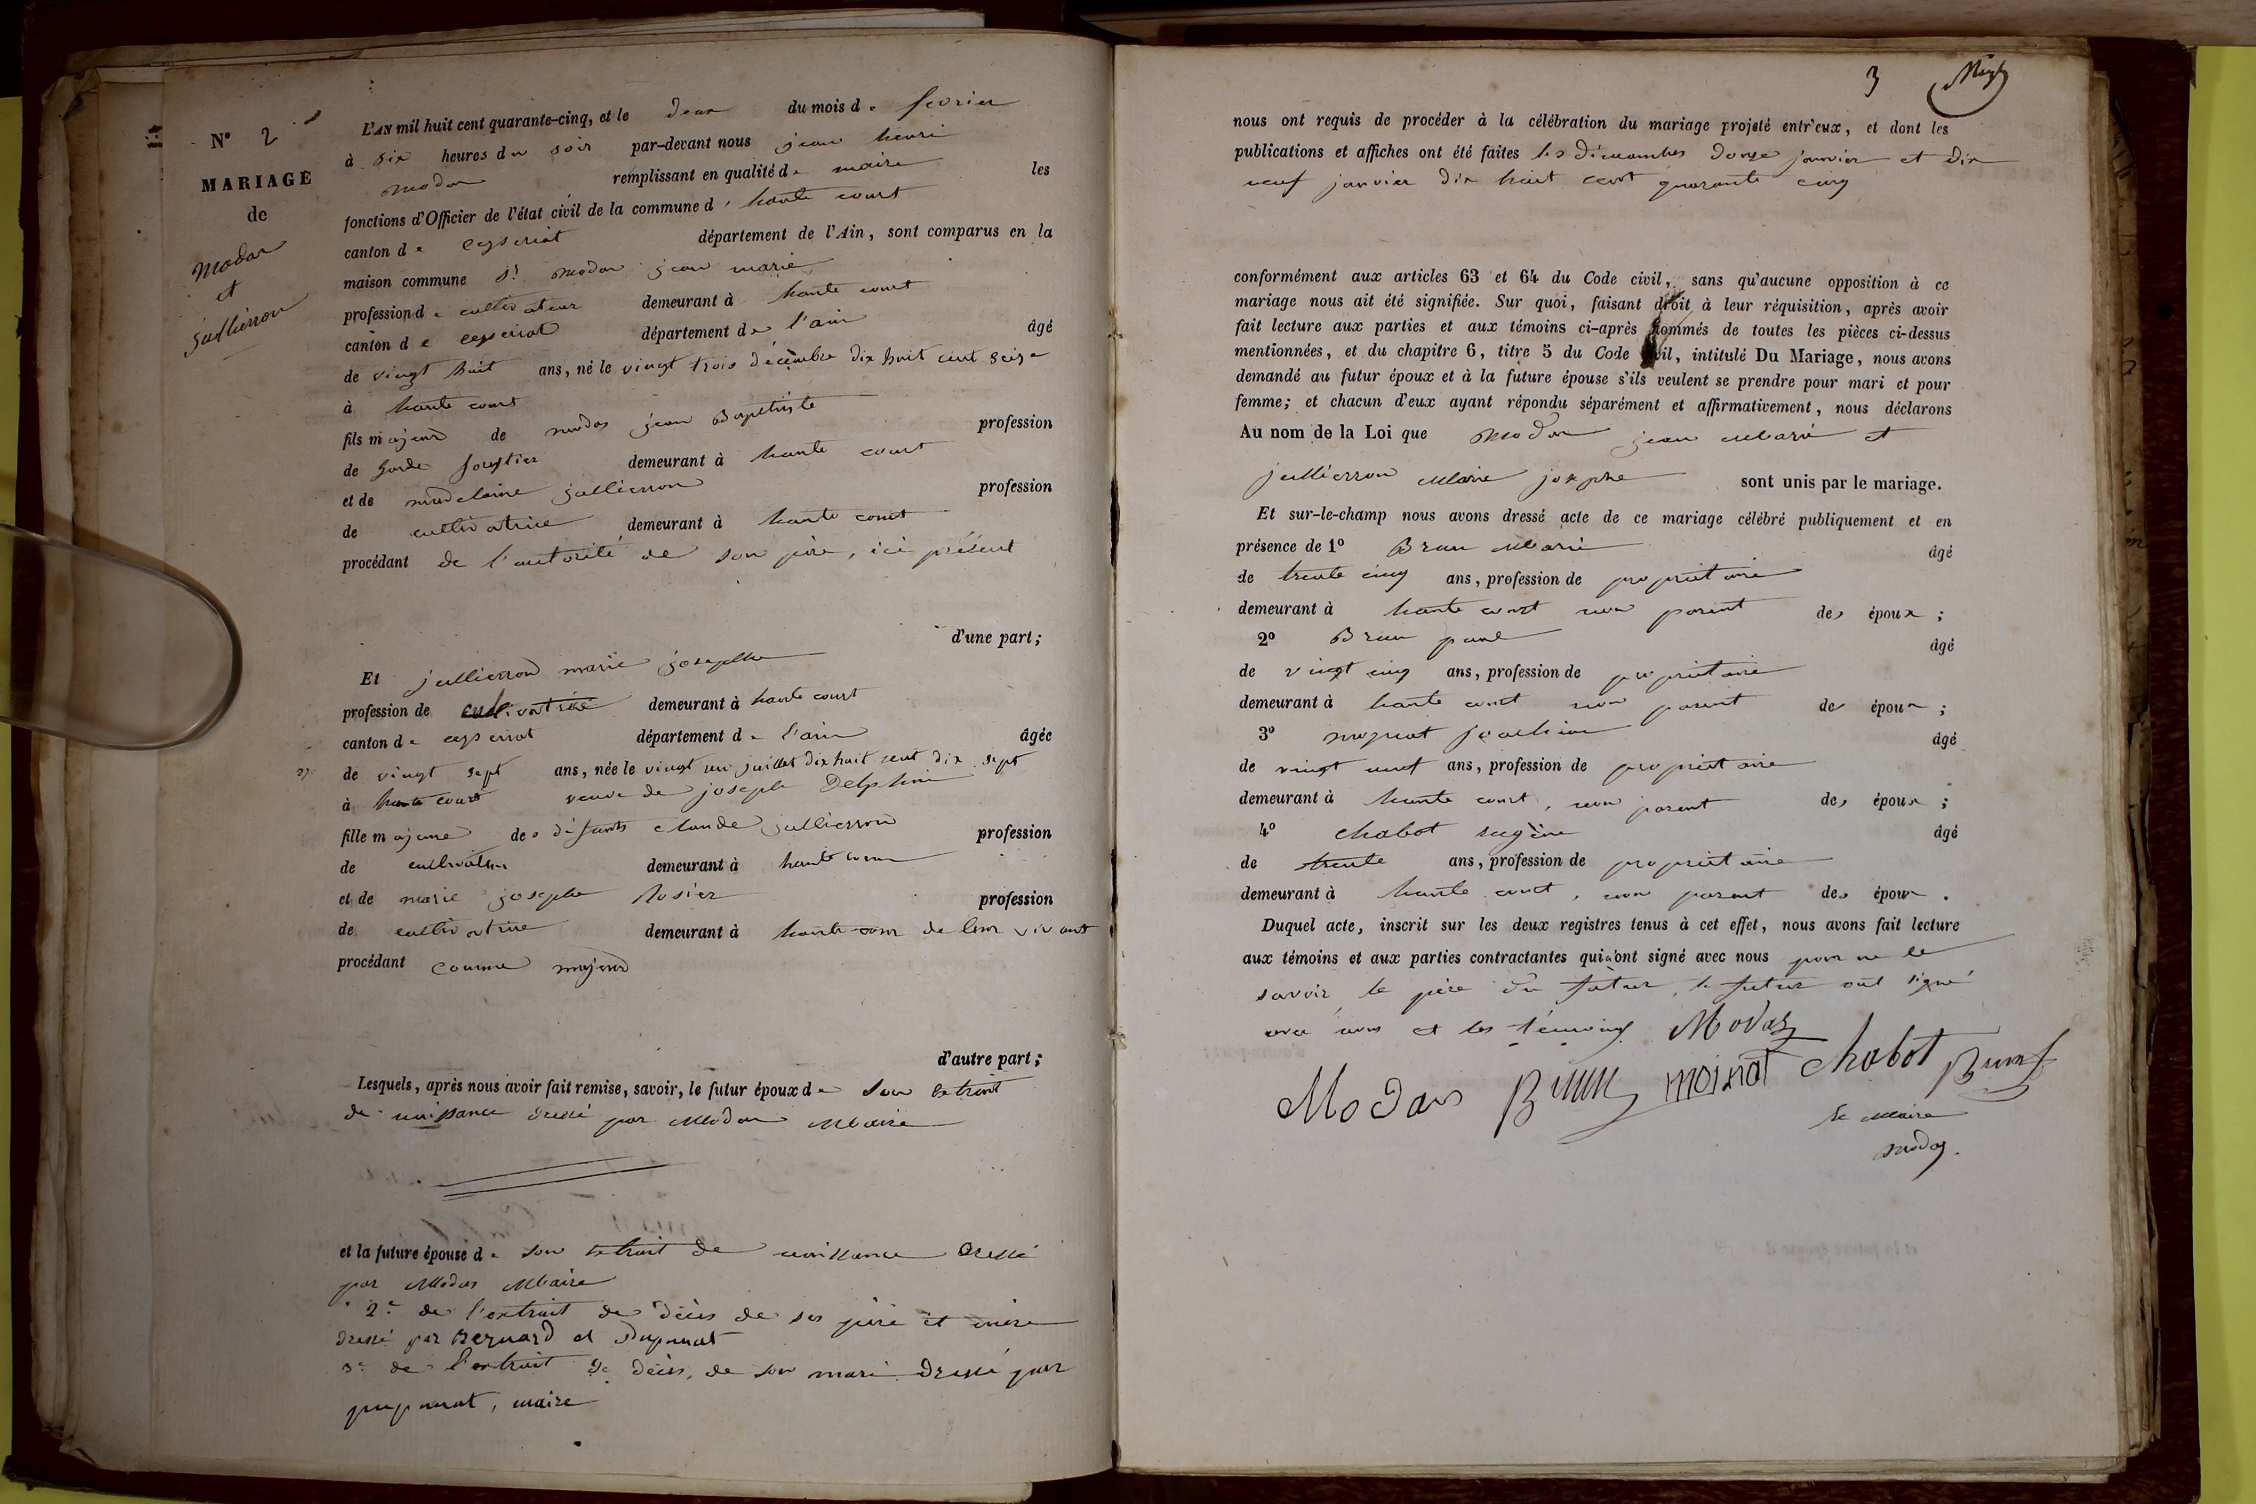 N° 2
MARIAGE
de
Modas
et
Jullierron
L'AN mil huit cent quarante-cinq, et le deux du mois de fevrier
à six heures du soir par-devant nous jean henri
modas remplissant en qualité de maire les
fonctions d'Officier de l'état civil de la commune d haute court
canton de ceyseriat département de l'Ain, sont comparus en la
maison commune Sr modas jean marie
profession de cultivateur demeurant à haute court
canton de ceyseriat département de l'ain âgé
de vingt huit ans, né le vingt trois décembre dix huit cent seize
à haute court
fils majeur de modas jean Baptiste profession
de garde foretier demeurant à haute court
et de madelaine jullierron profession
de cultivatrice demeurant à haute court
procédant de l'autorité de son père, ici présent
d'une part;
Et jullierron marie josephe
profession de cultivatrice demeurant à haute court
canton de ceyseriat département de l'ain âgée
de vingt sept ans, née le vingt un juillet dix huit cent dix sept
à haute court veuve de joseph Delphin
fille majeure des défunts claude jullierron profession
de cultivateur demeurant à haute cour
et de marie josephe Rosier profession
de cultivatrice demeurant à haute cour de leur vivant
procédant comme majeur
d'autre part;
Lesquels, après nous avoir fait remise, savoir, le futur époux de son extrait
de naissance dressé par Modas Maire
et la future épouse de son extrait de naissance dressé
par Modas Maire
2° de l'extrait de décès de ses père et mère
dressé par Bernard et
3° de l'extrait de décès, de son mari dressé par
maire
3
nous ont requis de procéder à la célébration du mariage projeté entr'eux, et dont les
publications et affiches ont été faites les dimanches douze janvier et dix
neuf janvier dix huit cent quarante cinq
conformément aux articles 63 et 64 du Code civil, sans qu'aucune opposition à ce
mariage nous ait été signifiée. Sur quoi, faisant droit à leur réquisition, après avoir
fait lecture aux parties et aux témoins ci-après nommés de toutes les pièces ci-dessus
mentionnées, et du chapitre 6, titre 5 du Code civil, intitulé Du Mariage, nous avons
demandé au futur époux et à la future épouse s'ils veulent se prendre pour mari et pour
femme; et chacun d'eux ayant répondu séparément et affirmativement, nous déclarons
Au nom de la Loi que modas jean Marie et
jullierron Marie josephe sont unis par le mariage.
Et sur-le-champ nous avons dressé acte de ce mariage célébré publiquement et en
présence de 1° Brun Marie âgé
de trente cinq ans, profession de propriétaire
demeurant à haute court non parent des époux;
2° Brun paul âgé
de vingt cinq ans, profession de propriétaire
demeurant à haute court non parent des époux;
3° moynat joachim âgé
de vingt neuf ans, profession de propriétaire
demeurant à haute court, non parent des époux;
4° chabot eugène âgé
de trente ans, profession de propriétaire
demeurant à haute court, non parent des époux.
Duquel acte, inscrit sur les deux registres tenus à cet effet, nous avons fait lecture
aux témoins et aux parties contractantes qui n'ont signé avec nous pour ne le
savoir le père du futur, le futur ont signé
avec nous et les témoins Modas
Modas Brun moinat chabot Brun
le Maire
modas